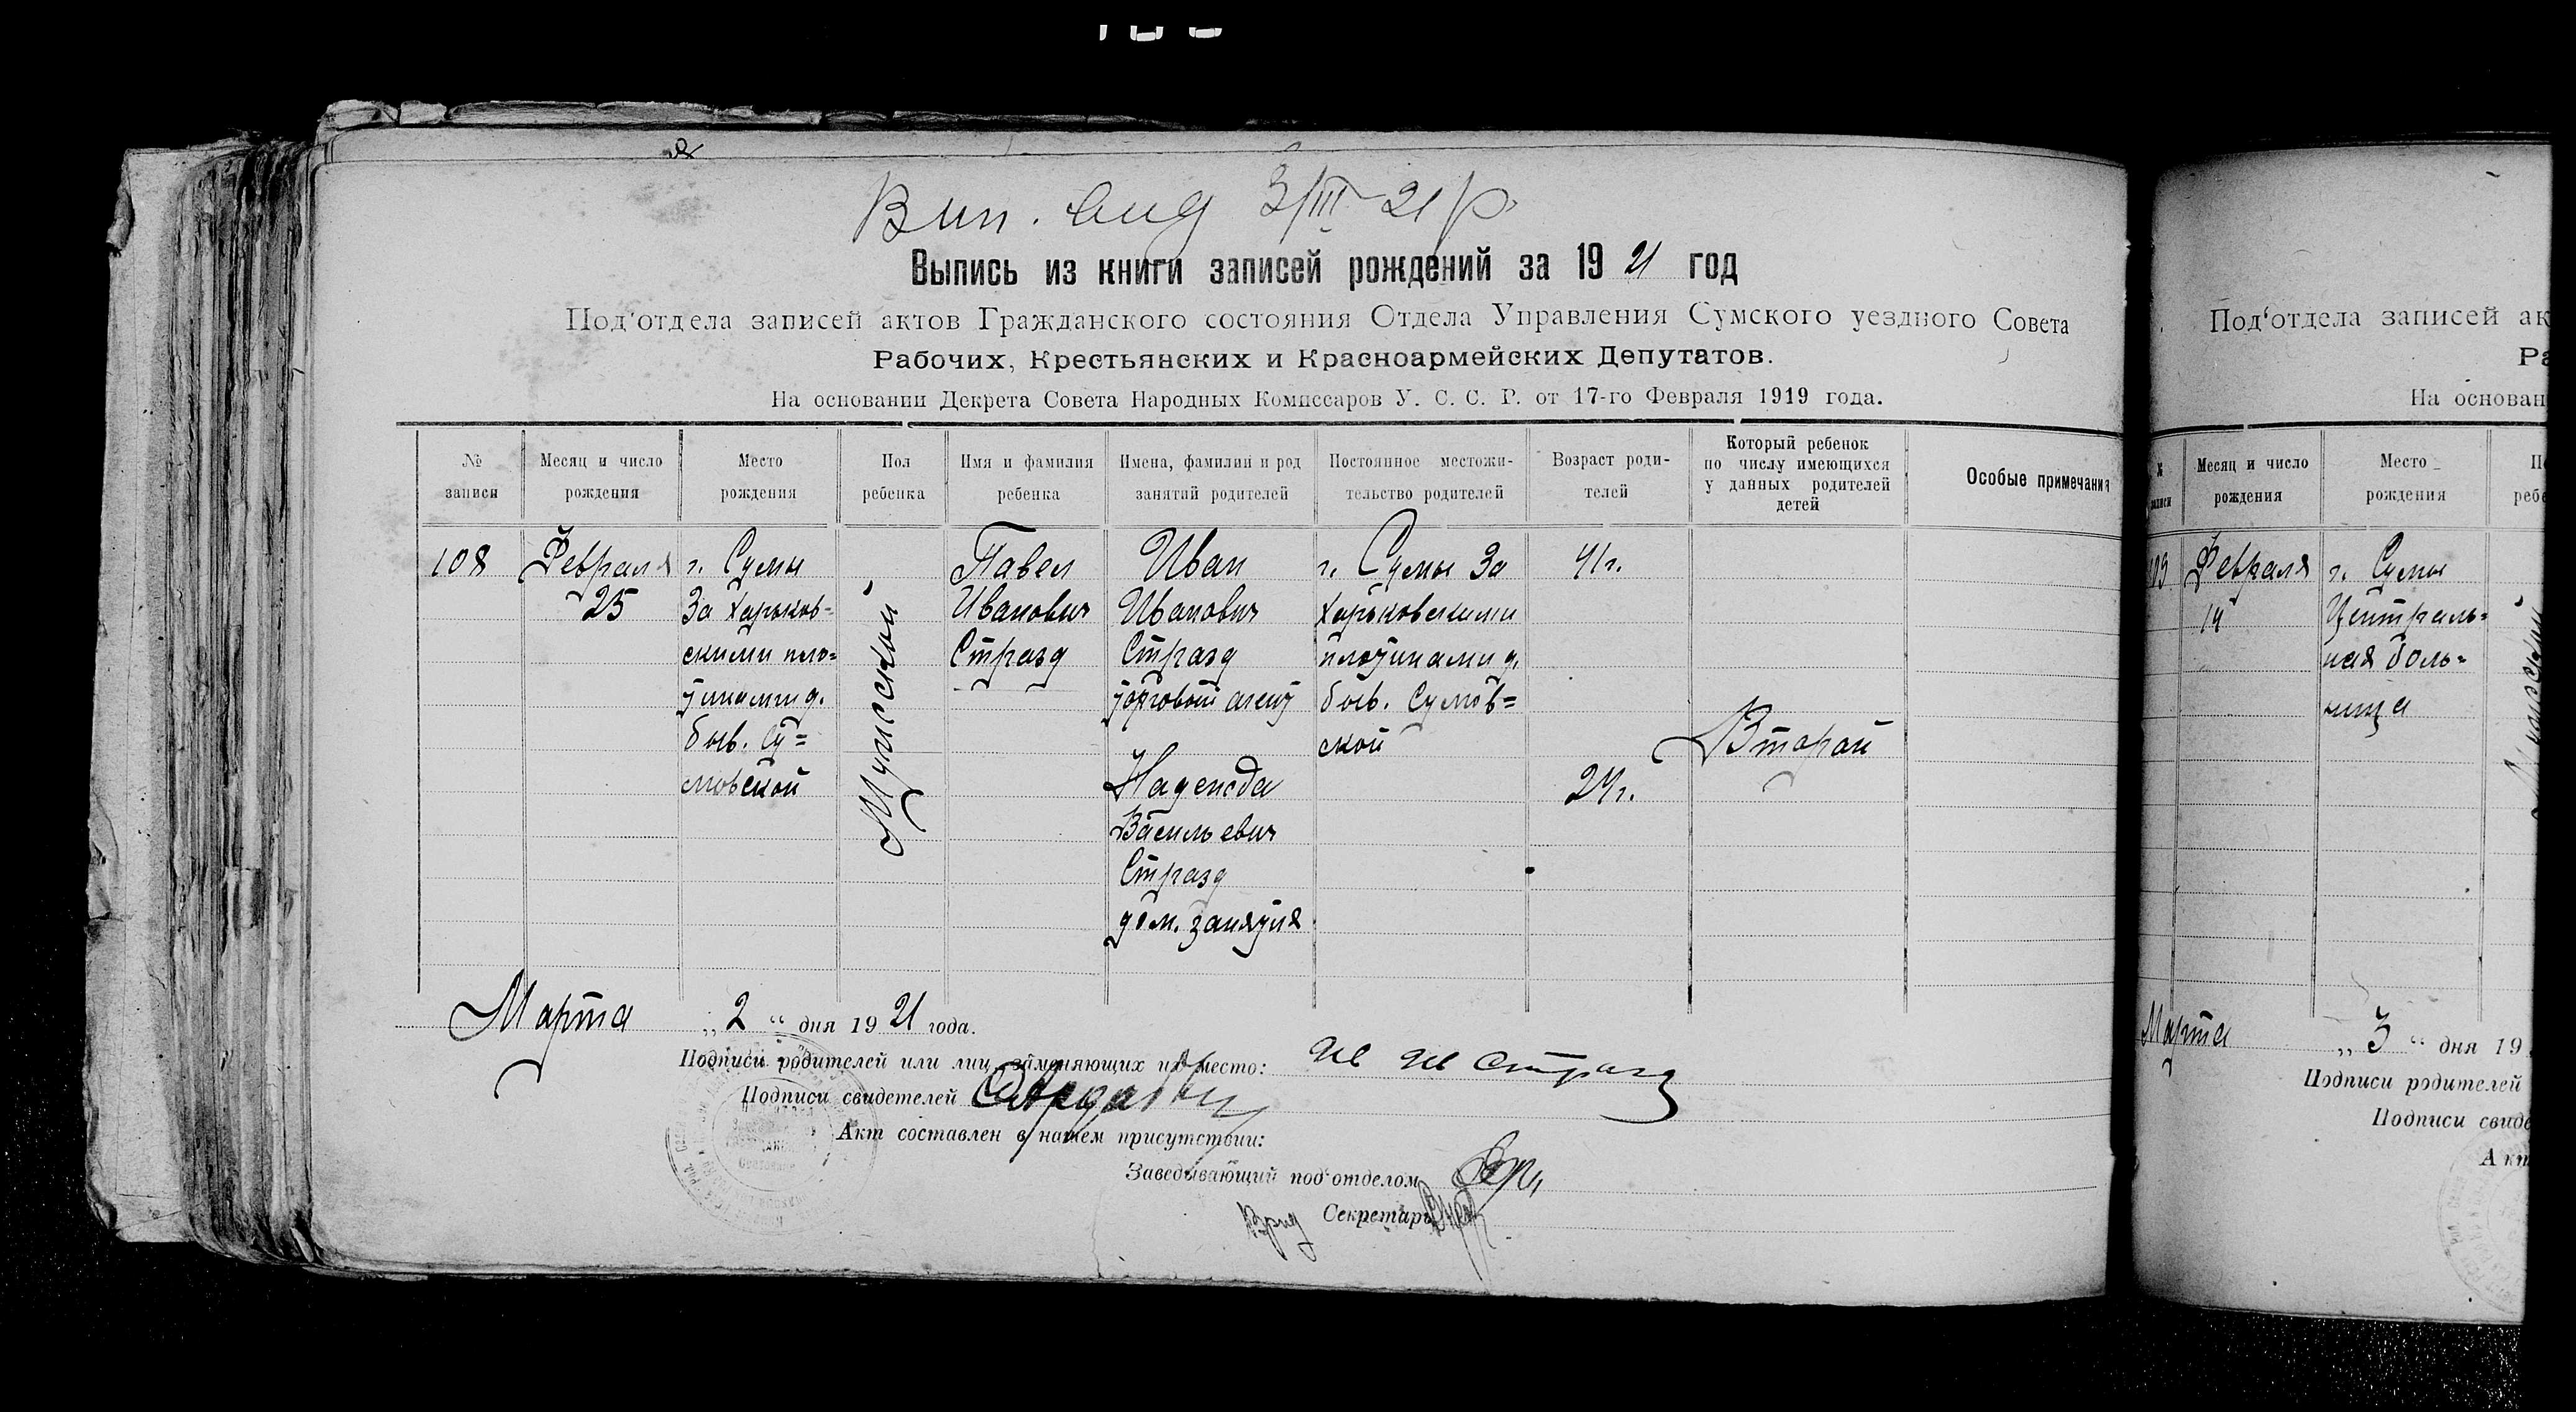 Вип. вид 3/III-21 р.
Выпись из книги записей рождений за 1921 год
Под'отдела записей актов Гражданского состояния Отдела Управления Сумского уездного Совета
Рабочих, Крестьянских и Красноармейских Депутатов.
На основании Декрета Совета Народных Комиссаров У. С. С. Р. от 17-го Февраля 1919 года.
№ записи
Месяц и число рождения
Место рождения
Пол ребенка
Имя и фамилия ребенка
Имена, фамилии и род занятий родителей
Постоянное местожи-
тельство родителей
Возраст роди-
телей
Который ребенок
по числу имеющихся
у данных родителей
детей
Особые примечания
108
Февраля
25
г. Сумы
За Харьков-
скими пло-
тинами д.
быв. Су=
мовской
Мужской
Павел
Иванович
Стразд
Иван
Иванович
Стразд
торговый агент
Надежда
Васильевич
Стразд
дом. занятия
г. Сумы За
Харьковскими
плотинами д.
быв. Сумов=
ской
41г.
24г.
Второй
Марта „2“ дня 1921 года.
Подписи родителей или лиц, заменяющих их место: Ив Ив Стразд
Подписи свидетелей
Акт составлен в нашем присутствии:
Заведывающий под'отделом
Врид Секретарь
Под'отдела записей ак
Ра
На основан
записи
Месяц и число
рождения
Место
рождения
109
Февраля
14
г. Сумы
Централь=
ная боль=
ница
Марта „3“ дня 19
Подписи родителей
Подписи свиде
Акт